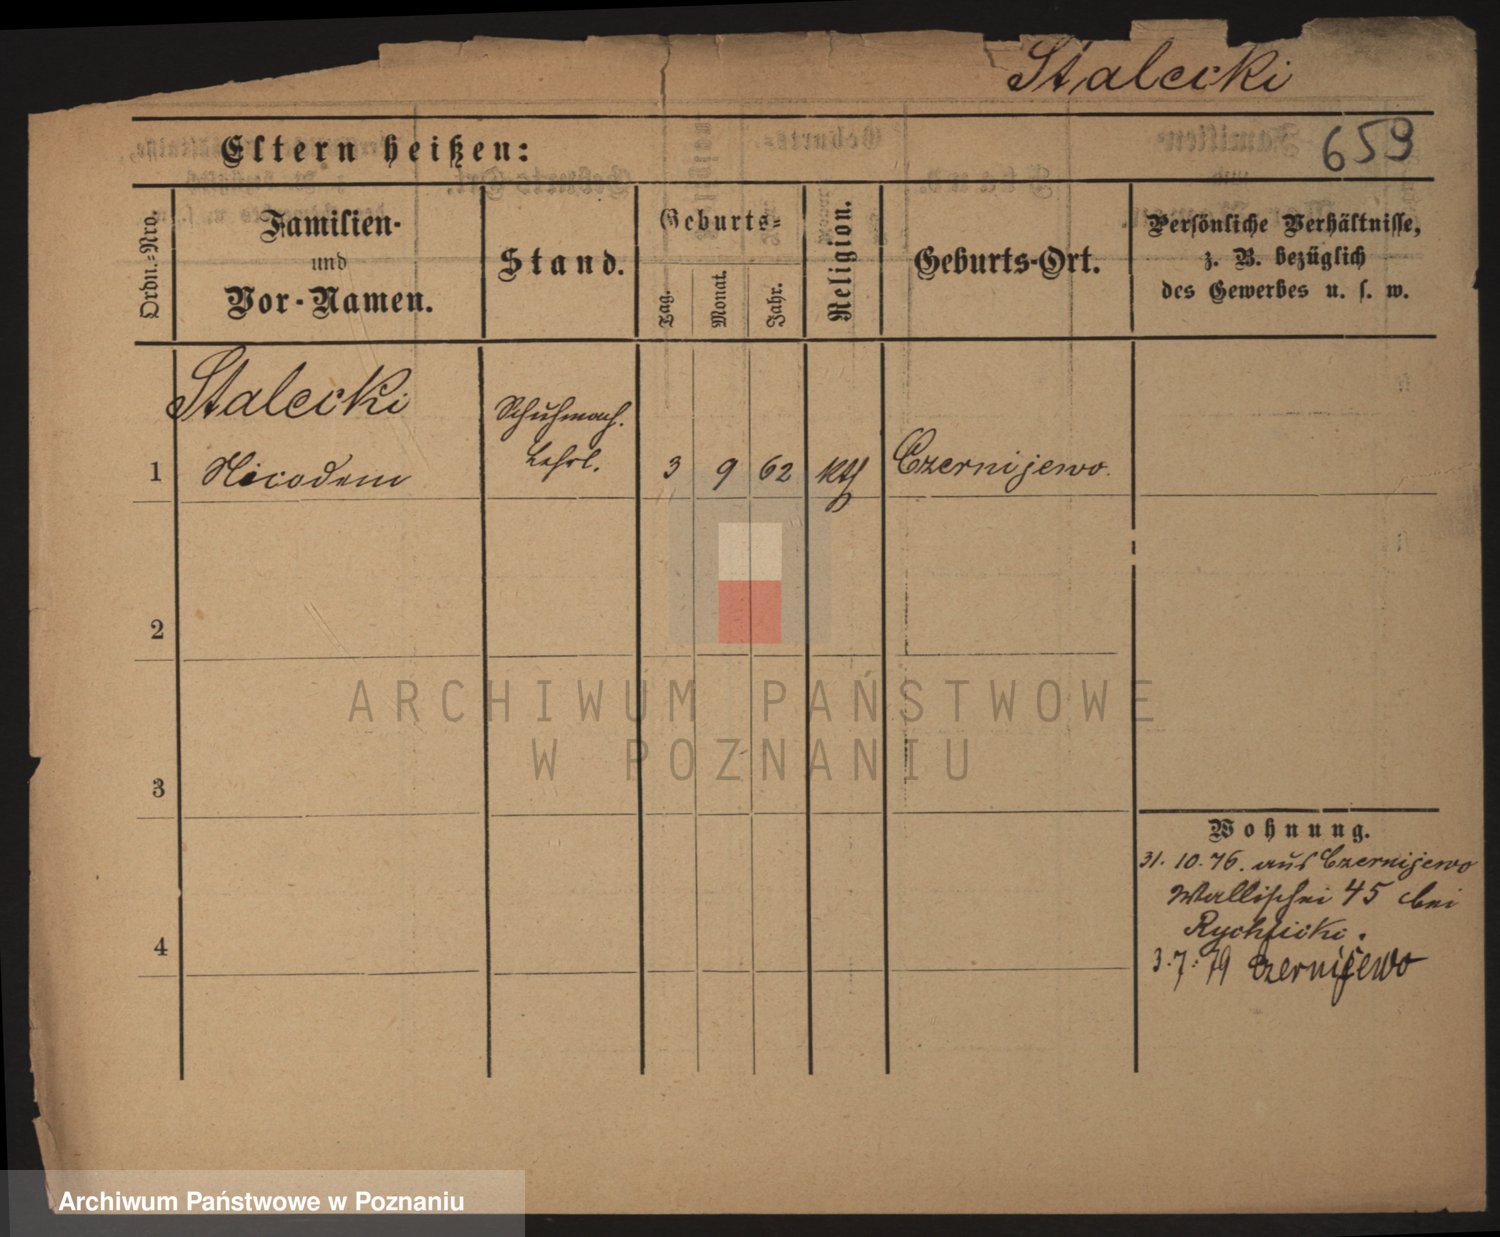 Stalecki
659
Eltern heißen:
Ordn.-Nro.
Familien-
und
Vor-Namen.
Stand.
Geburts-
Tag.
Monat.
Jahr.
Religion.
Geburts-Ort.
Persönliche Verhältnisse,
z. B. bezüglich
des Gewerbes u. s. w.
Stalecki
Schuhmach.
1 Nicodem Lehrl. 3 9 62 kth Czernijewo.
2
3
4
Wohnung.
31. 10. 76. aus Czernijewo
Wallischei 45 bei
Rychlicki.
3. 7. 79 Czernijewo
ARCHIWUM PAŃSTWOWE
W POZNANIU
Archiwum Państwowe w Poznaniu